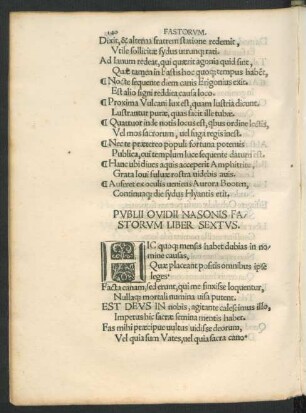 240 FASTORVM.
Dixit, & alterna fratrem statione redemit,
Vtile sollicitæ sydus utrunq; rati.
Ad Ianum redeat, qui quærit agonia quid sint,
Quæ tamen in fastis hoc quoq; tempus habēt,
¶ Nocte sequente diem canis Erigoneius exit.
Est alio signi reddita causa loco.
¶ Proxima Vulcani lux est, quam lustria dicunt.
Lustrantur puræ, quas facit ille tubæ.
¶ Quattuor inde notis locus est, qbus ordine lectis,
Vel mos sacrorum, uel fuga regis inest.
¶ Nec te prætereo populi fortuna potentis
Publica, cui templum luce sequente datum est.
¶ Hanc ubi diues aquis acceperit Amphitrite,
Grata Ioui fuluæ rostra uidebis auis.
¶ Auferet ex oculis ueniens Aurora Booten,
Continuaq; die sydus Hyantis erit.
PVBLII OVIDII NASONIS FA-
STORVM LIBER SEXTVS.
HIC quoq; mensis habet dubias in no
mine causas,
Quæ placeant positis omnibus ipse
leges.
Facta canam, sed erunt, qui me finxisse loquentur,
Nullaq; mortali numina uisa putent.
EST DEVS IN nobis, agitante calescimus illo,
Impetus hic sacræ semina mentis habet.
Fas mihi præcipue uultus uidisse deorum,
Vel quia sum Vates, uel quia sacra cano.